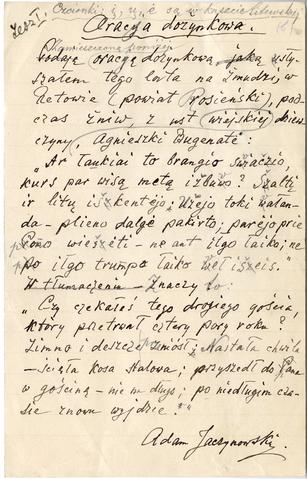 Zesz I.
Czcionki: ę, ų, ė są w kaszcie litewskiej
Oracja dożynkowa.
Zamieszczoną poniżej
oracją dożynkową, usły-
szałem tego lata na Żmudzi w
Retowie (powiat Rosieński), pod-
czas żniw, z ust wiejskiej dziew-
czyny, Agnieszki Bugenatė:
„Ar taukiai to brangio svaczio,
kurs par visą metą iżbuvo? Szaltį
ir litų iszkentėjo; Użėjo toki valan-
da - plieno dalgė pakirto; parėjo prie
Pono wieszėti - ne ant ilgo laiko; ne-
po ilgo trumpo laiko vėl iszeis."
W tłumaczeniu - Znaczy to:
„Czy czekałeś tego drogiego gościa
który przetrwał cztery pory roku?
Zimno i deszcze zniósł; Nastała chwila
- ścięła kosa stalowa; przyszedł do Pana
w gościnę - nie na długo; po niedługim cza-
sie znowu wyjdzie."
Adam Jaczynowski.